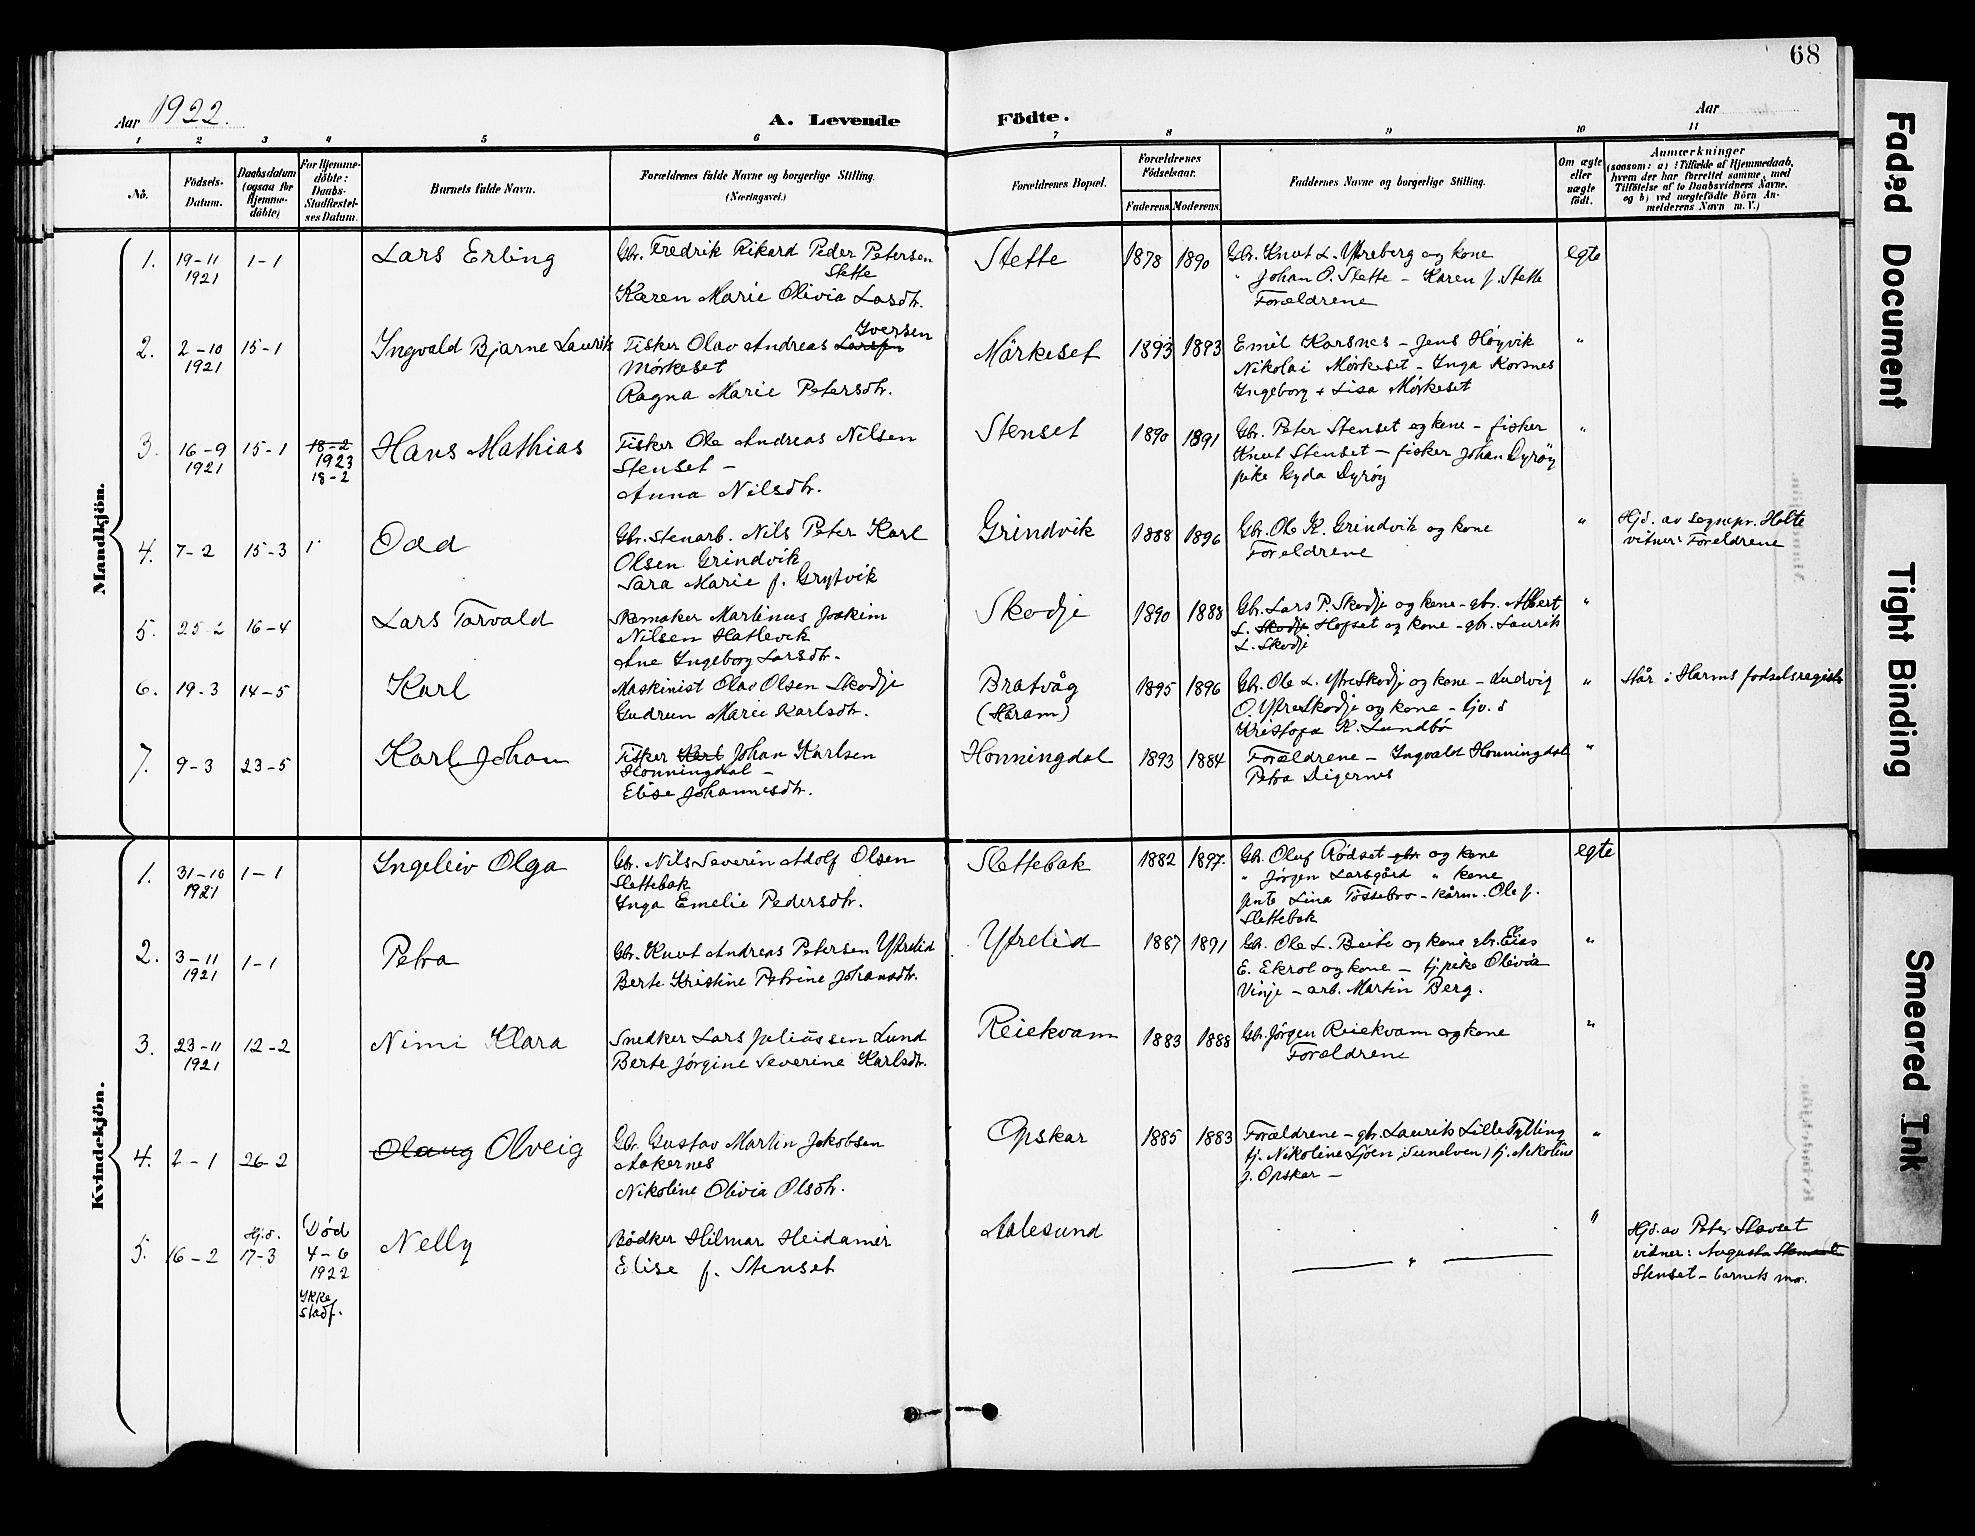 68
Aar 1922.
A. Levende Födte.
Aar
1 2 3 4 5 6 7 8 9 10 11
No.
Födsels-Datum.
Daabsdatum (ogsaa för Hjemme-döbte)
For Hjemme-döbte: Daabs-Stadfæstel-ses Datum.
Barnets fulde Navn.
Forældrenes fulde Navne og borgerlige Stilling.
(Næringsvei.)
Forældrenes Bopæl.
Forældrenes Födselsaar.
Faderens. Moderens.
Faddernes Navne og borgerlige Stilling.
Om ægte eller uægte født.
Anmærkninger
(saasom: a) i Tilfælde af Hjemmedaab,
hvem der har forrettet samme, med
Tilföielse af to Daabsvidners Navne,
og b) ved uægtefödte Börn An-
melderens Navn m. V.)
Mandkjön.
1. 19-11 1921 1-1 Lars Erling
Gbr. Fredrik Rikard Peder Petersen
Stette
Karen Marie Olivia Lasdtr.
Stette 1878 1890
Gbr. Knut L. Ytreberg og kone
" Johan P. Stette - Karen J. Stette
Forældrene
egte
2. 2-10 1921 15-1 Ingvald Bjarne Laurits
Iversen
Fisker Olav Andreas
Mørkeset
Ragna Marie Petersdtr.
Mörkeset 1893 1893
Emil Korsnes - Jens Høyvik
Nikolai Mörkeset - Inga Korsnes
Ingeborg + Lisa Mörkeset
"
3. 16-9 1921 15-1 18-2 1923 18-2 Hans Mathias
Fisker Ole Andreas Nilsen
Stenset -
Anna Nilsdtr.
Stenset 1890 1891
Gbr. Peter Stenset og kone - fisker
Knut Stenset - fisker Johan Dyrøy
pike Gyda Dyrøy
"
4. 7-2 15-3 Odd
Gbr. Stenarb. Nils Peter Karl
Olsen Grindvik
Sara Marie f. Grytvik
Grindvik 1888 1896
Gbr. Ole K. Grindvik og kone
Foreldrene
"
Hjd. av sognepr. Holte
vitner: Foreldrene
5. 25-2 16-4 Lars Torvald
Skomaker Martinus Joakim
Nilsen Hatlevik
Ane Ingeborg Larsdtr.
Skodje 1890 1888
Gbr. Lars P. Skodje og kone - gbr. Albert
L. Skodje Hofset og kone - gbr. Laurits
L. Skodje
"
6. 19-3 14-5 Karl
Maskinist Olav Olsen Skodje
Gudrun Marie Karlsdtr.
Bratvåg
(Haram)
1895 1896
Gbr. Ole L. Ytreskodje og kone - Ludvig
O. Ytreskodje og kone -
Kristofa K. Lundbø
"
Står i Harams fødselsregister
7. 9-3 23-5 Karl Johan
Fisker Karl Johan Karlsen
Honningdal -
Elise Johannesdtr.
Honningdal 1893 1884
Forældrene - Ingvald Honningdal
Petra Digernes
"
Kvindekjön.
1. 31-10 1921 1-1 Ingeleiv Olga
Gbr. Nils Severin Adolf Olsen
Slettebak
Inga Emelie Pedersdtr.
Slettebak 1882 1897
Gbr. Oluf Rödset gbr. og kone
" Jørgen Larsgård " kone
jente Lina Tössebro - Ole J.
Slettebak
egte
2. 3-11 1921 1-1 Petra
Gbr. Knut Andreas Petersen Ytrelid
Berte Kristine Petrine Johansdtr.
Ytrelid 1887 1891
Gbr. Ole L. Beite og kone gbr. Elias
E. Ekrol og kone - tj. pike Olivia
Vinje - arb. Martin Berg.
"
3. 23-11 1921 12-2 Nimi Klara
Snedker Lars Juliussen Lund
Berte Jørgine Severine Karlsdtr.
Reiekvam 1883 1888
Gbr. Jørgen Reiekvam og kone
Forældrene
"
4. 2-1 26-2 Olaug Olveig
Gbr. Gustav Martin Jakobsen
Aakernes
Nikoline Olivia Olsdtr.
Opskar 1885 1883
Forældrene - gbr. Laurits Lilletylling
tj. Nikoline Ljøen, Sunelven) tj. Nikoline
J. Opskar -
"
5. 16-2 Hjd. 17-3 Død 4-6 1922 Ikke stadf. Nelly
Bødker Hilmar Heidamer
Elise f. Stenset
Aalesund
"
"
Hjd. av Peter Stavset
vidner: Augusta
Stenset - barnets mor.
Faded Document
Tight Binding
Smeared Ink